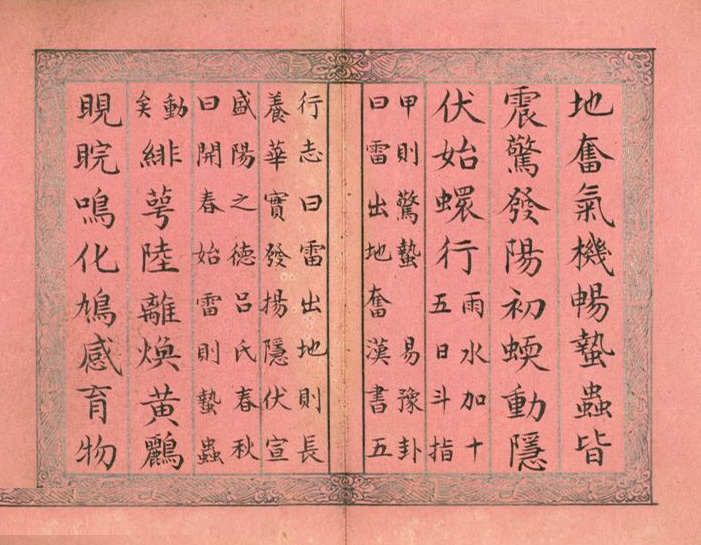 地奮氣機暢蟄蟲皆
震驚發陽初蝡動隱
伏始蠉行雨水加十
五日斗指
甲則驚蟄 易豫卦
曰雷出地奮漢書五
行志曰雷出地則長
養華實發揚隱伏宣
盛陽之德呂氏春秋
曰開春始雷則蟄蟲
動
矣緋萼陸離煥黃鸝
睍睆鳴化鳩感育物